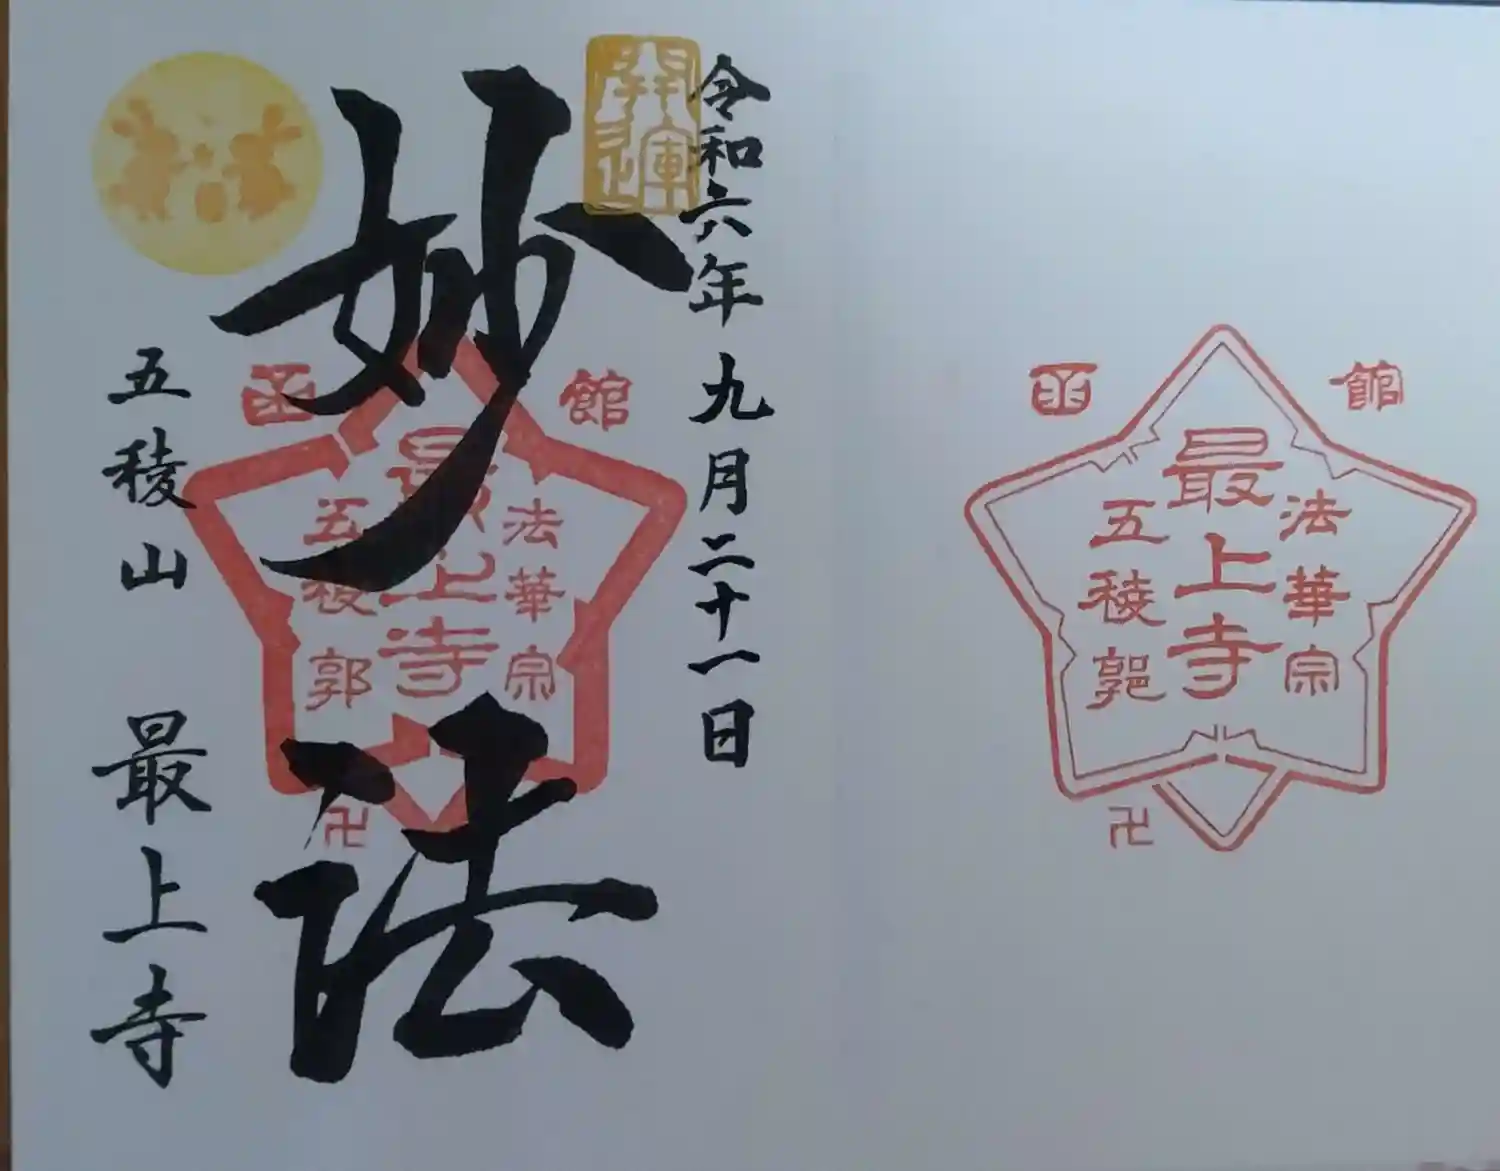 函 館
最上寺
法華宗
五稜郭
卍
令和六年九月二十一日
開運
妙法
函 館
最上寺
法華宗
五稜郭
卍
五稜山 最上寺